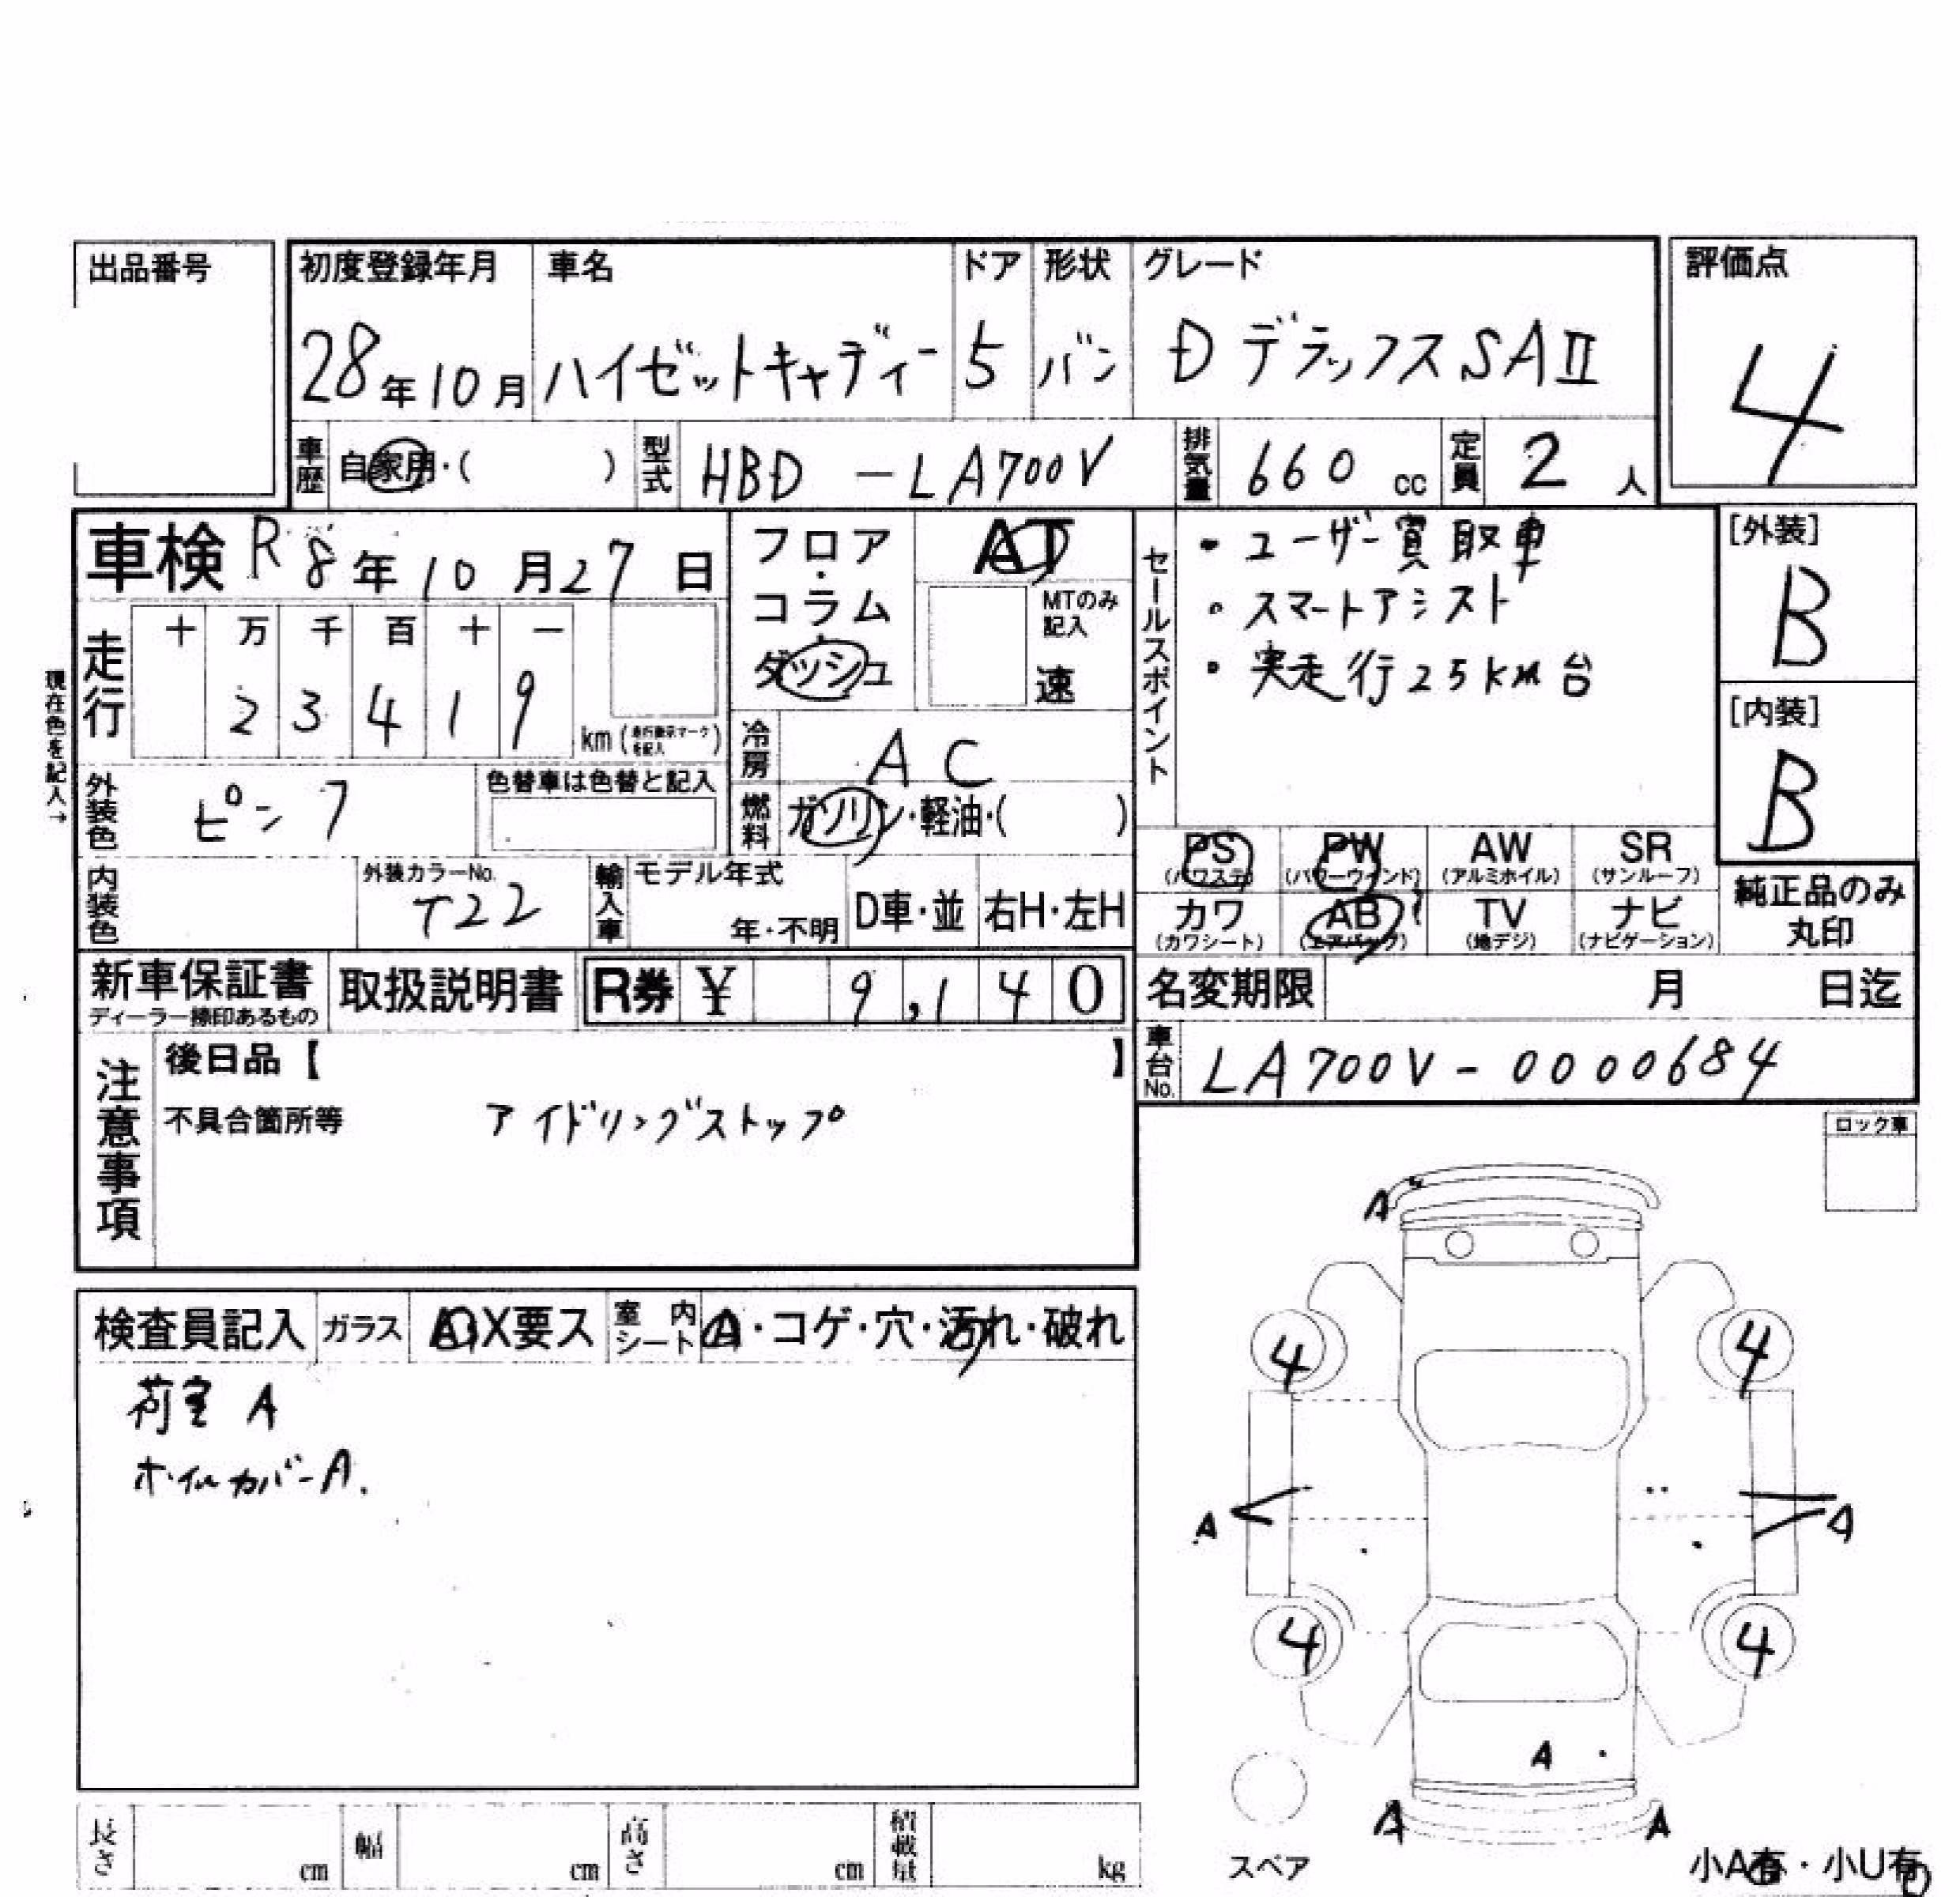 出品番号
初度登録年月 車名 ドア 形状 グレード 評価点
28年10月 ハイゼットキャディー 5 バン D デラックスSAⅡ 4
車歴 自家用・( ) 型式 HBD-LA700V 排気量 660 cc 定員 2 人
車検 R8年10月27日
フロア・コラム・ダッシュ AT
MTのみ記入 速
セールスポイント
・ユーザー買取車
・スマートアシスト
・実走行25km台
[外装] B
[内装] B
現在色を記入→
走行 十 万 千 百 十 一
2 3 4 1 9 km(走行表示マークを記入)
冷房 AC
外装色 ピンク 色替車は色替と記入
燃料 ガソリン・軽油・( )
PS(パワステ) PW(パワーウインド) AW(アルミホイル) SR(サンルーフ)
カワ(カワシート) AB(エアバック) TV(地デジ) ナビ(ナビゲーション)
純正品のみ丸印
内装色 外装カラーNo. T22 輸入車 モデル年式 年・不明 D車・並 右H・左H
新車保証書 ディーラー捺印あるもの 取扱説明書 R券 ¥ 9,140
名変期限 月 日迄
車台No. LA700V-0000684
注意事項 後日品【 】
不具合箇所等 アイドリングストップ
ロック車
検査員記入 ガラス A・X要ス 室内シート A・コゲ・穴・汚れ・破れ
荷室 A
ホイルカバーA.
A
4 4
A A
4 4
A
A A
スペア
小A有・小U有
長さ cm 幅 cm 高さ cm 積載量 kg